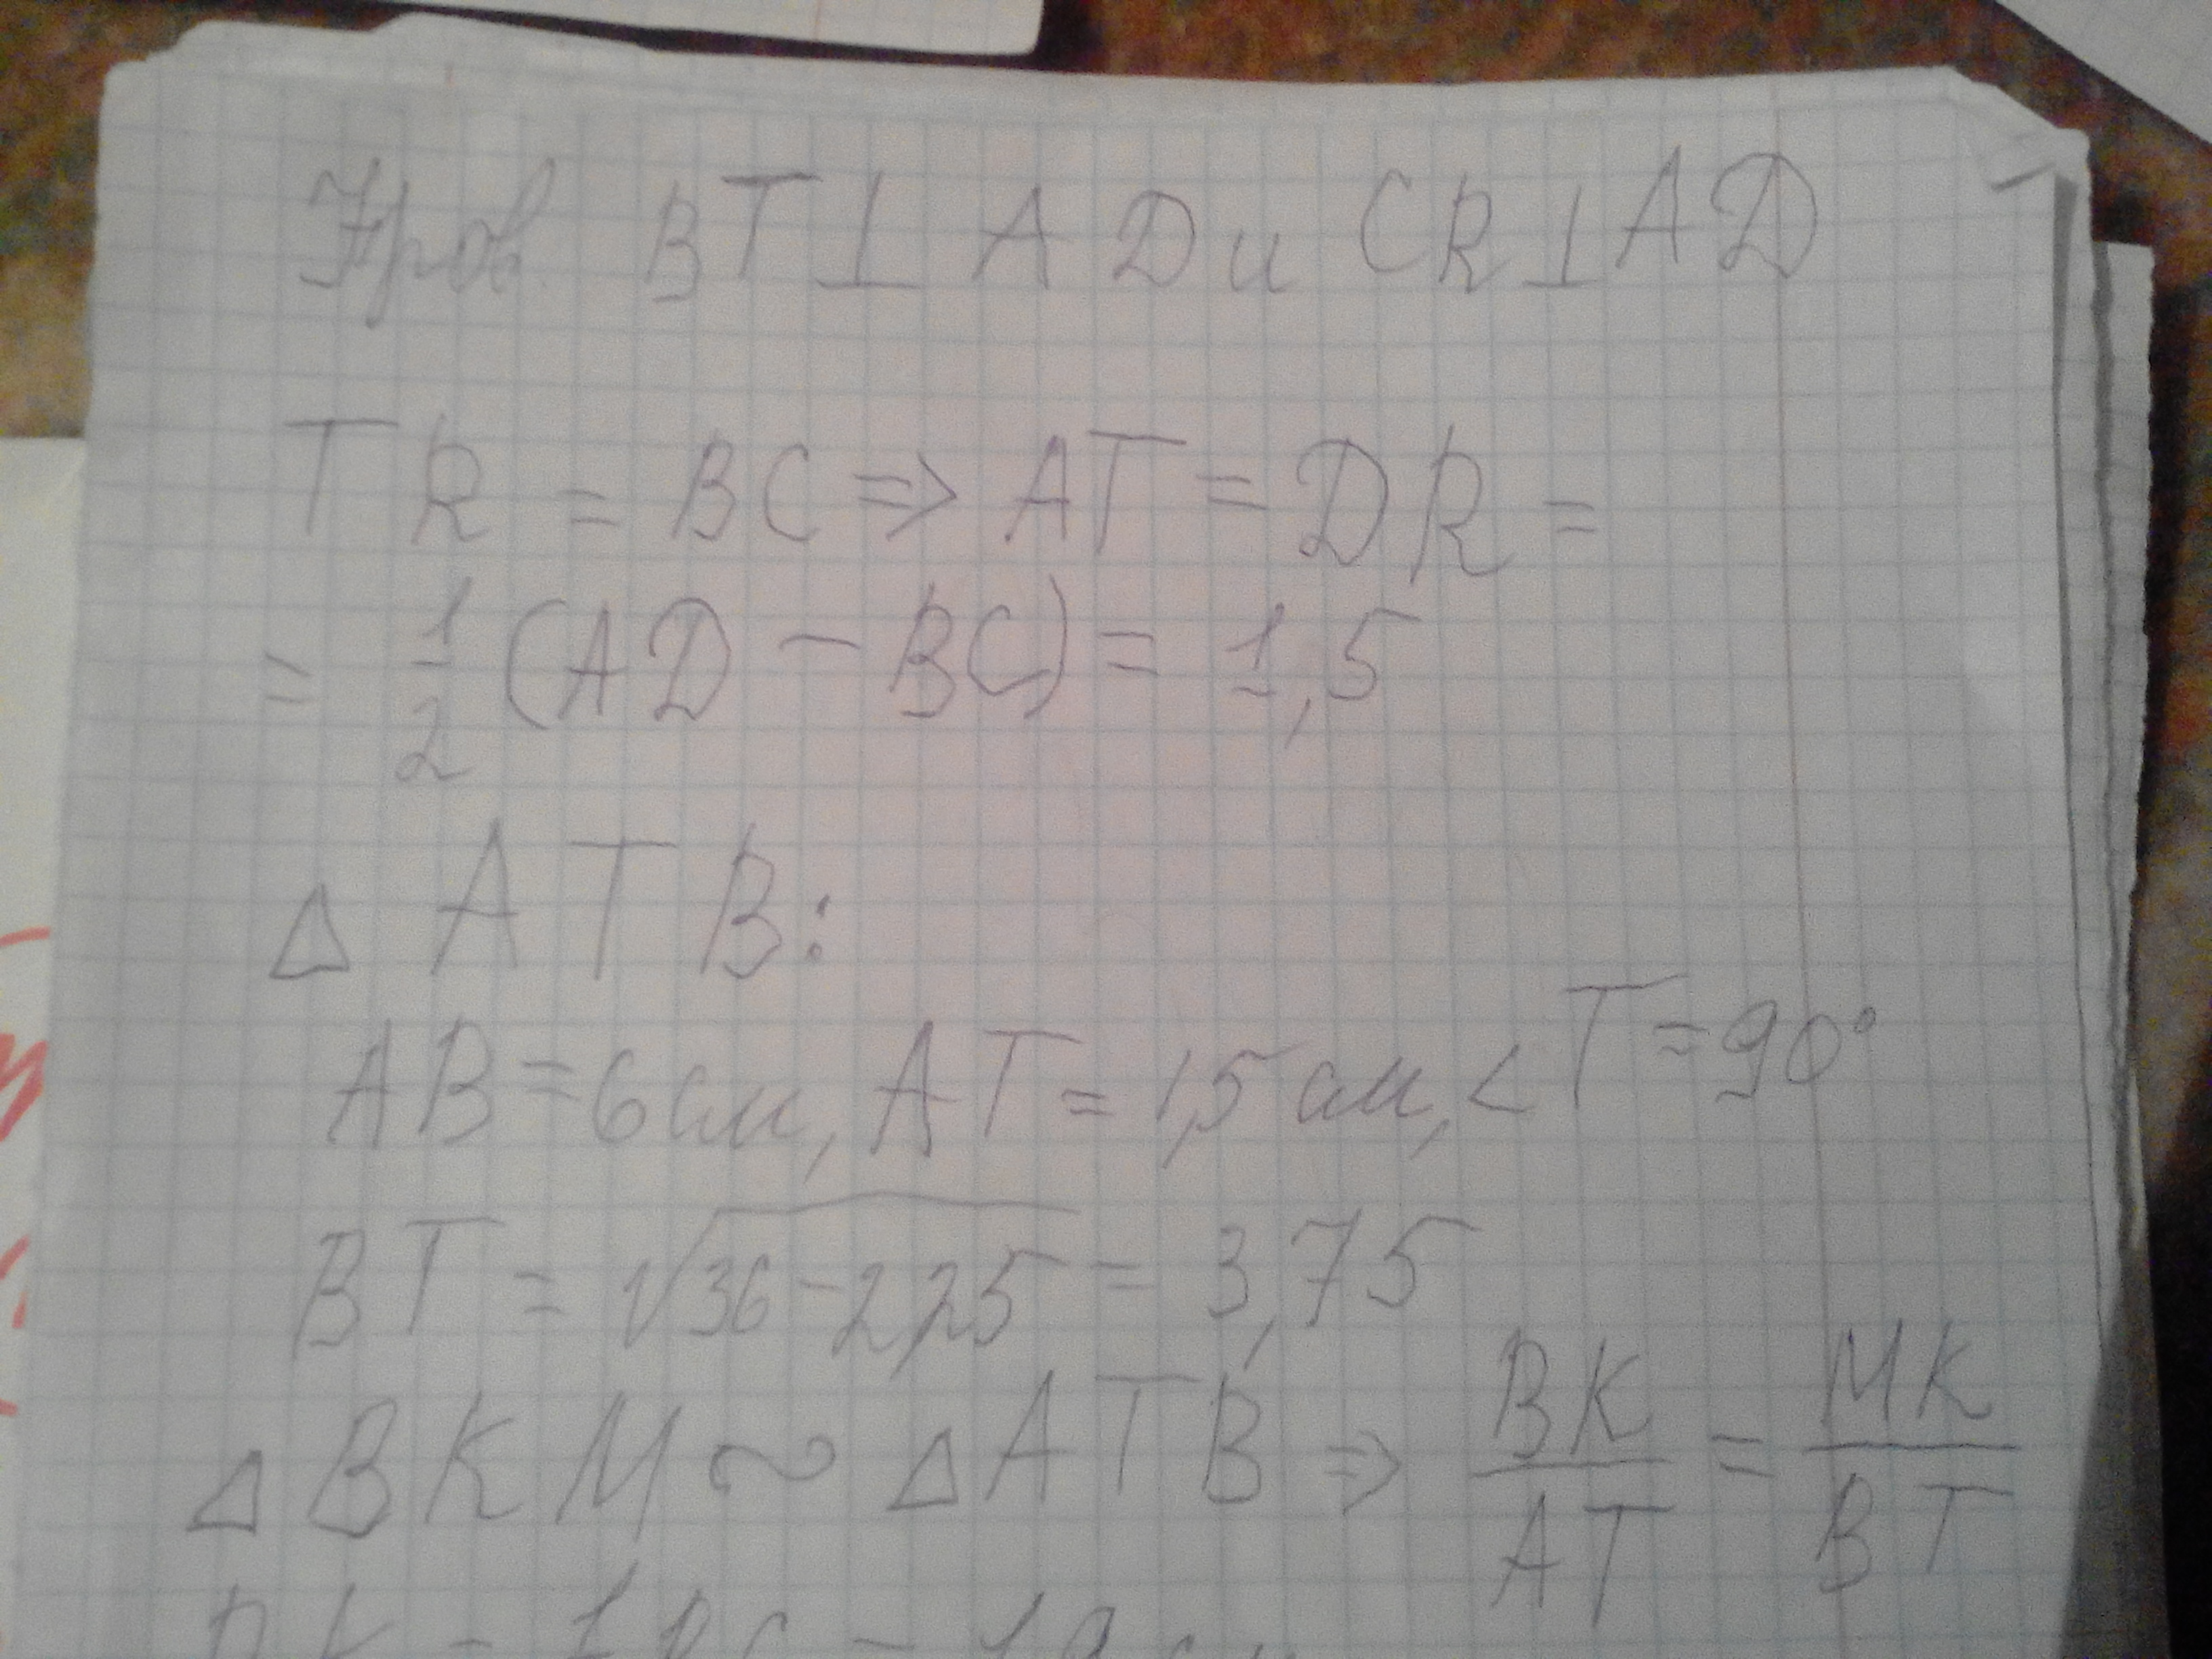 Пров. BT ⊥ AD и CR ⊥ AD
TR = BC ⇒ AT = DR =
= 1/2 (AD − BC) = 1,5
△ ATB:
AB = 6 см, AT = 1,5 см, ∠T = 90°
BT = √(36−2,25) = 3,75
△ BKM ~ △ ATB ⇒ BK/AT = MK/BT